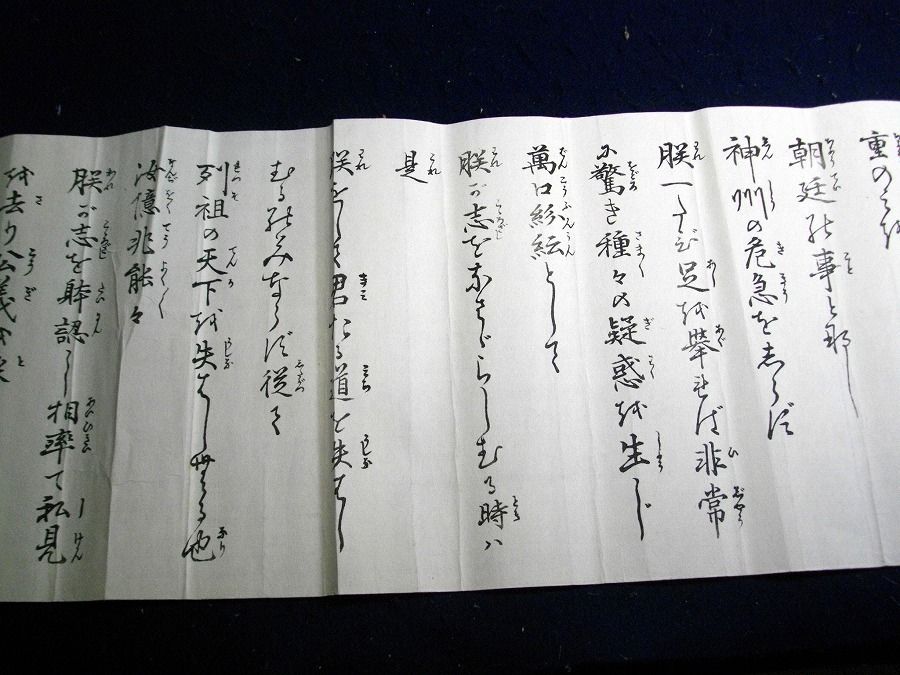 重のみを
朝廷の事となし
神州の危急をしらず
朕一たび足を擧れば非常
に驚き種々の疑惑を生じ
萬口紛紜として
朕が志をなさざらしむる時ハ
是
朕をして君たる道を失はし
むるのみならず従て
列祖の天下を失はしむる也
汝億兆能々
朕が志を躰認し相率て私見
を去り公義を